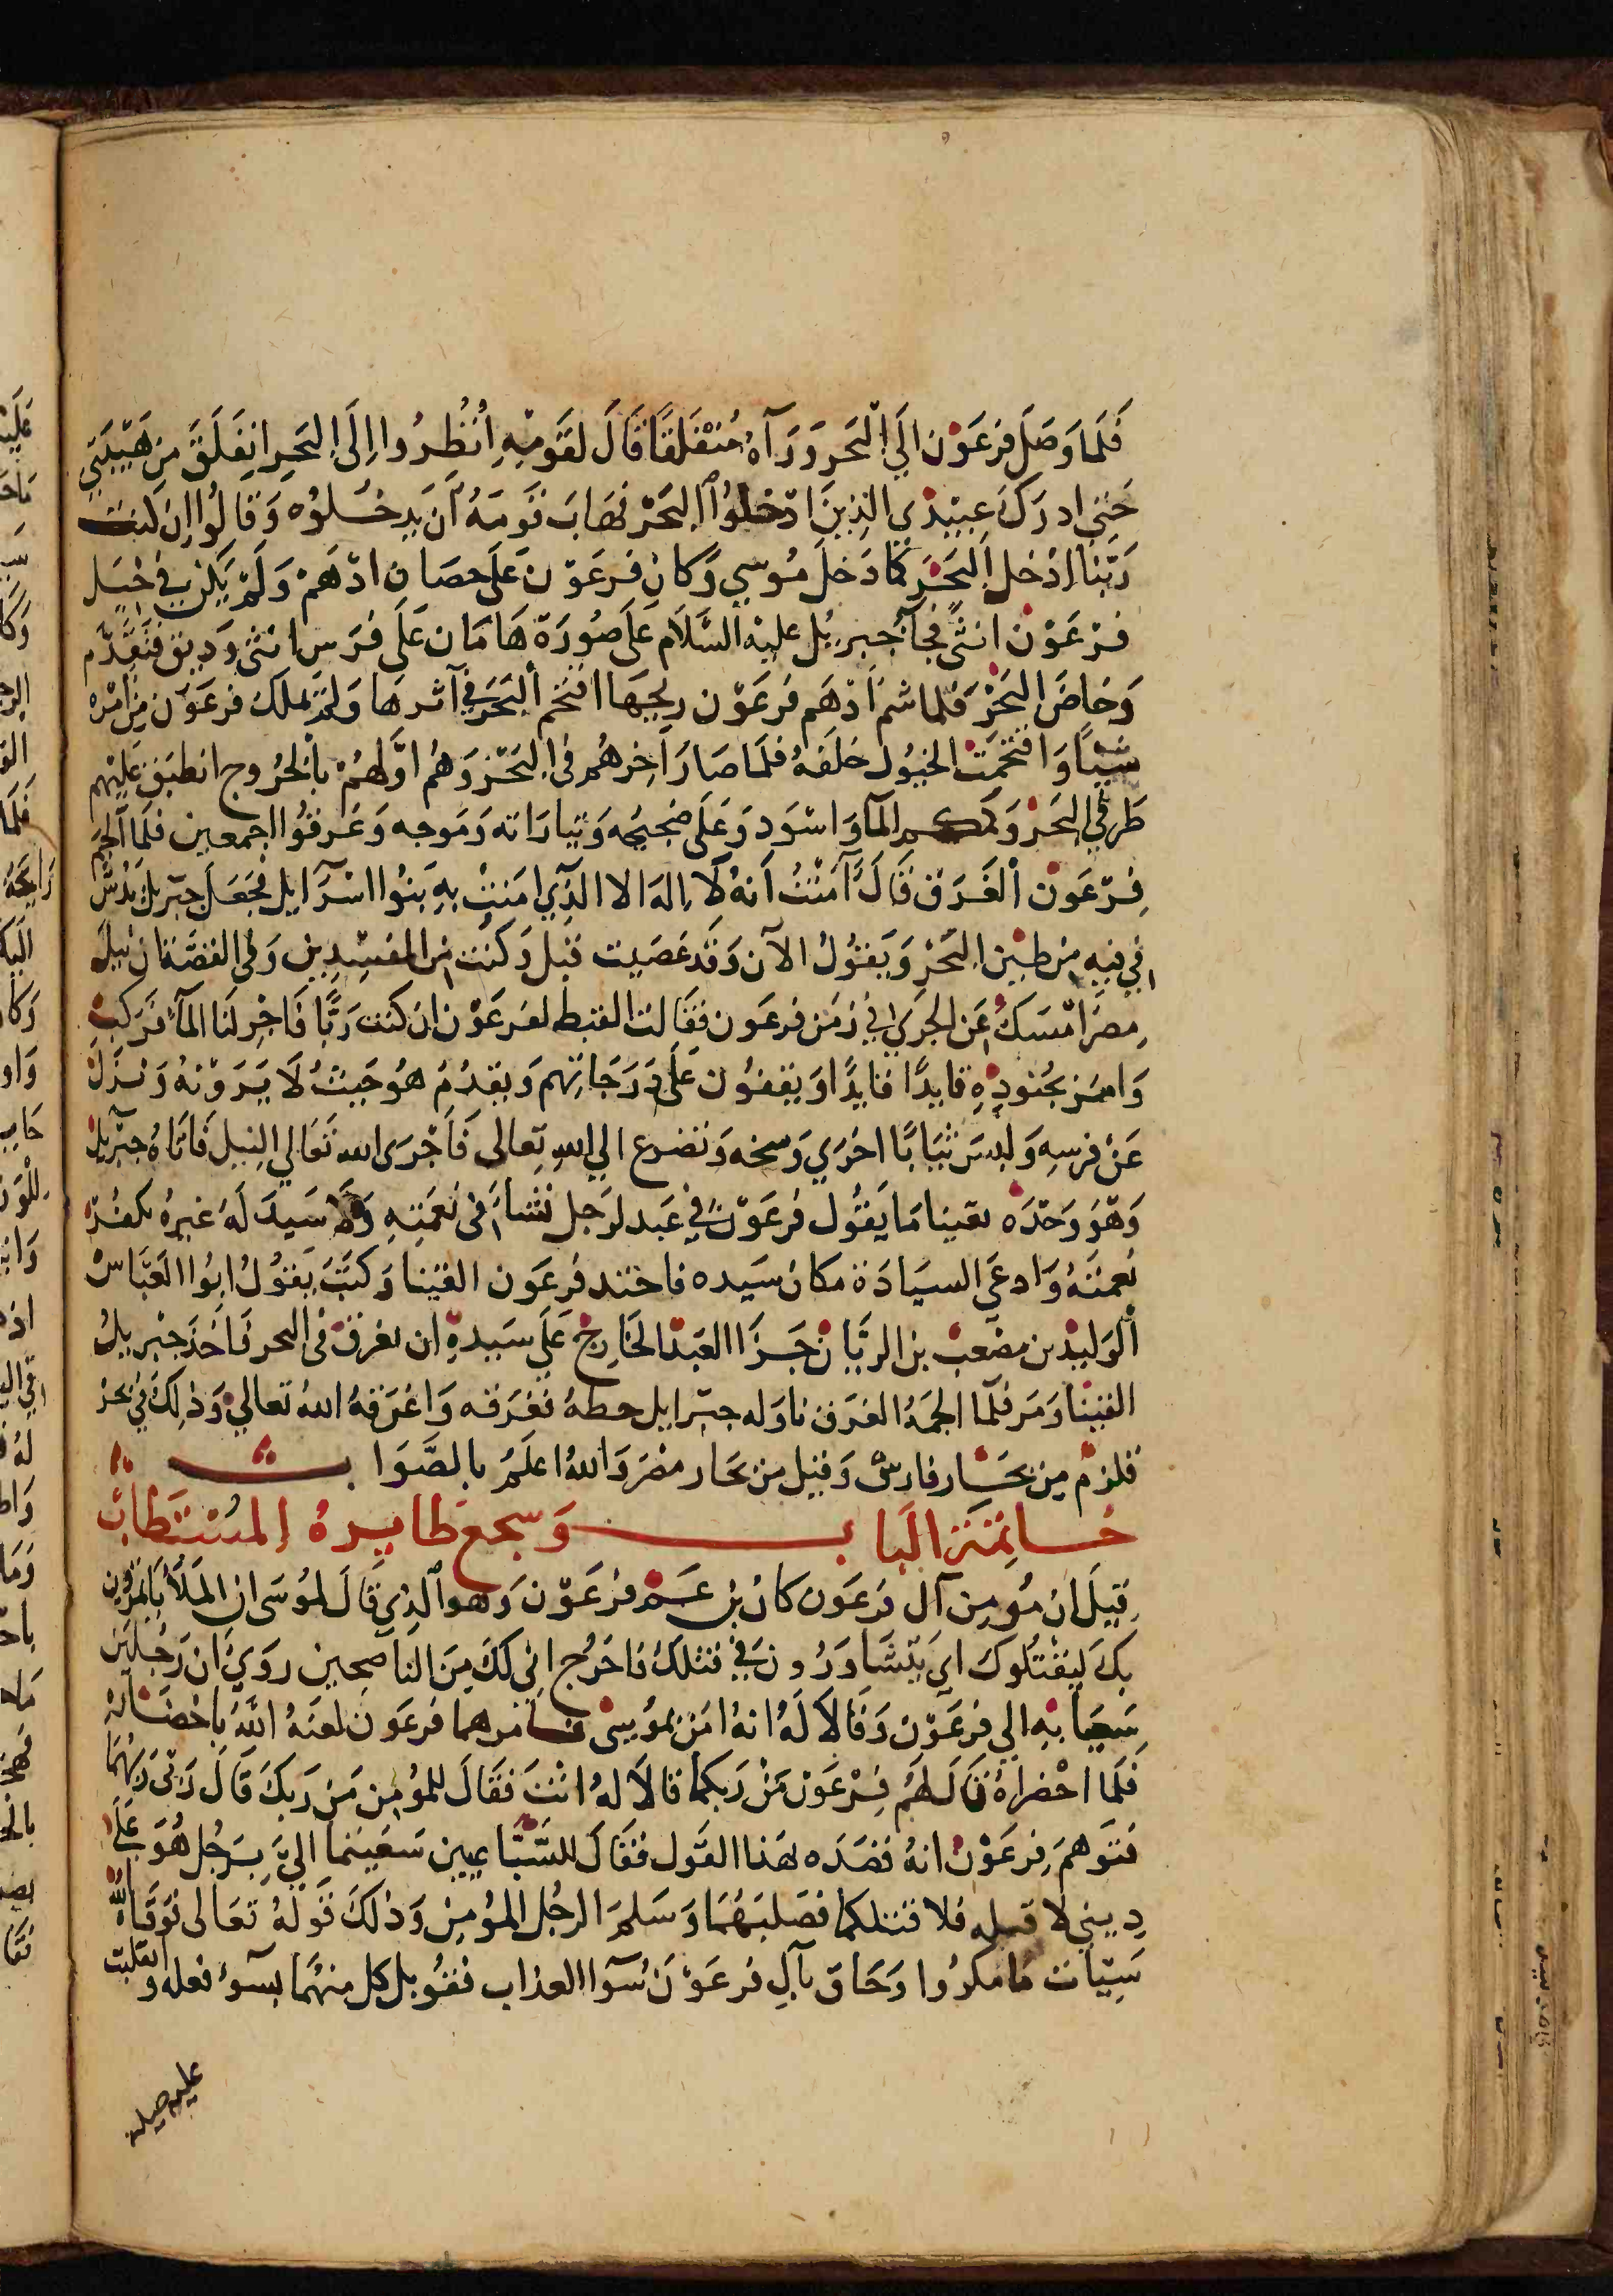 فَلَمَا وَصَلَ فِرْعَوْن الَي الْبَحَر وَرَآهُ مُنْفَلقًا قَالَ لقَوْمِهِ اُنْظُرُوا اِلَى البَحرِ انفَلَقَ مِن هَيْبَتي
حَتي ادرَكَ عَبيْدي الذِينَ ادْخلُوا البَحْر فهَابَ قَومَهُ اَن يَدخُلوُه وَقالُوا اِن كنت
رَبّنا ادْخل البَحَرَ كَمَا دَخلَ مُوسي وَكان فِرعَوْن عَلَى حصَان ادْهَمْ وَلَمْ يَكن في خيَل
فرْعَوْن انثَى فجآ جبريُل عليْه السَّلَام عَلَى صُورَة هَامَان عَلَى فرَس انثي وَديق فتَقَدَّم
وَخاضَ البَحْرَ فلما شم اَدْهَم فرعَوْن ريحَهَا اقتحم البَحَرَ في آثرهَا وَلمْ يملك فرعَوْن مِن امْره
شَيْيًا وَاقتحَمَتْ الخيُول خلفَهُ فلمَا صَارَ آخِرهُم فى البَحْرِ وَهُم اوَّلهُمْ بالْخرُوج انطبَق عَليْهم
طَرفي البَحْر وَ المآ وَاسْوَد وَعَلَى ضجيجه وَتيارَاته وَمَوجه وَغرقوُا اجمعين فلَمَا الجَم
فِرْعَوْن الْغَرَق قَالَ آمَنْتُ اَنهُ لَا اِلهَ الا الذِي امَنتْ بهِ بَنُوا اسْرَآيل فجَعَلَ جبْريلُ يَدُسّ
في فيهِ من طيْن البَحْرِ وَيَقوُلُ الآن وَقَد عَصَيت قبْل وَكنت من المفسِدِين وَفي القصَّة ان نيلَ
مصرَ امْسَكُ عَن الجَري في زمَن فرعَون فقَالت القبط لفرعَوْن ان كنت رَبًّا فَاجْر لَنا المآء فرَكبَ
وَامَر بجُنودِهِ قايدًا قايدًا وَيقفوُن عَلَى دَرَجَاتهم وَيقدُمُ هوُ حَيثُ لَا يَرَوْنهُ وَنزَلَ
عَنْ فرسِهِ وَلبسَ ثيَابًا اخرَي وَسخه وَتضرع الي اللهِ تعالى فَاَجْرَى الله تَعَالي النِيل فَاتَاهُ جبْريلُ
وَهوَ وَحْدَه بقينا مَا يَقوُل فرعَوْن في عَبد لرَجل نشأ فى نعمَتِهِ وَلا سَيدَ لَهُ غيرهُ بكفُرِ
نعمَتهُ وَادعَى السيَادَة مكان سَيده فاخَذ فرعَون القتينا وَكتَبَ يَقوُلُ ابوُا العَبّاسْ
اْلوَليْد بن مصْعَبْ بن الريَّانْ جَزَا العَبْد الخَارجْ عَلَى سَيدهِ ان يغرقَ فى البحر فَاَخَذَ جبْريلُ
القتينا وَمَر فلما الجمَهُ الغرَق نَاوَله جبْرايل خطهُ فعَرَفه وَاغرَقهُ اللهُ تعَالي وَذلِكَ في بَحْر
قلزمْ من بحَار فارسْ وَقيل من بحَار مصْرَ وَاللهُ اعلَمُ بالصَّوَابـــــ
خاتِمَة البَابـــــ وَسجع طايِرهُ المسْتَطابْ
قيَلَ ان مُومِن آل فرعَون كان بن عَم فرْعَوْن وَهو الذي قَالَ لموسَى ان المَلَأ يَاتمرُون
بكَ ليَقْتلوُك اي يَتشَاوَرُون في قتلك فاخرُج انى لكَ مِنَ الناصِحين رويَ ان رَجُليَن
سَعَيا بهِ الي فرعَوْن وَقَالَا لَهُ انهُ امَن بموُسَى فامرهما فرعَون لعَنَهُ اللهُ باحْضَارهْ
فَلمَا احْضرَاهُ قَالَ لهَمُ فِرْعَوْن مَنْ رَبكما قالَا لهُ انْتَ فقَالَ للمؤمن مَن رَبكَ قَالَ رَبّي رَبهُمَا
فتَوَهمَ فِرعَوْن انهُ قصَدَه بهَذا القَول فقَالَ للسَّبَّاعيين سَعَيتما اليَّ برَجُل هُوَ عَلَى
دِيني لا قتله فلا قتلكما فصَلبَهُمَا وَسَلمَ الرجُل المؤمِن وَذلكَ قَولهُ تعَالى فوَقَاهُ اللّهُ
سَيّات مَا مَكرُوا وَحَاق بآلِ فرعَوْنَ سُوآ العذاب فقوُبل كل منهُمَا بسوُءِ فعله وَانقلبت
عليه حيلته